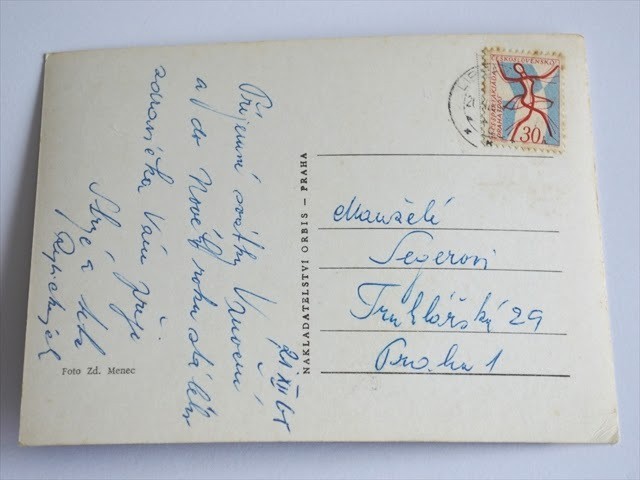 Příjemné svátky Vánoční
a do Nového roku stálého
zdravíčka Vám přeje
Strýc a teta
21 XII 65
Foto Zd. Menec
NAKLADATELSTVÍ ORBIS – PRAHA
ČESKOSLOVENSKO
30 h
Manželé
Severovi
Truhlářská 29
Praha 1